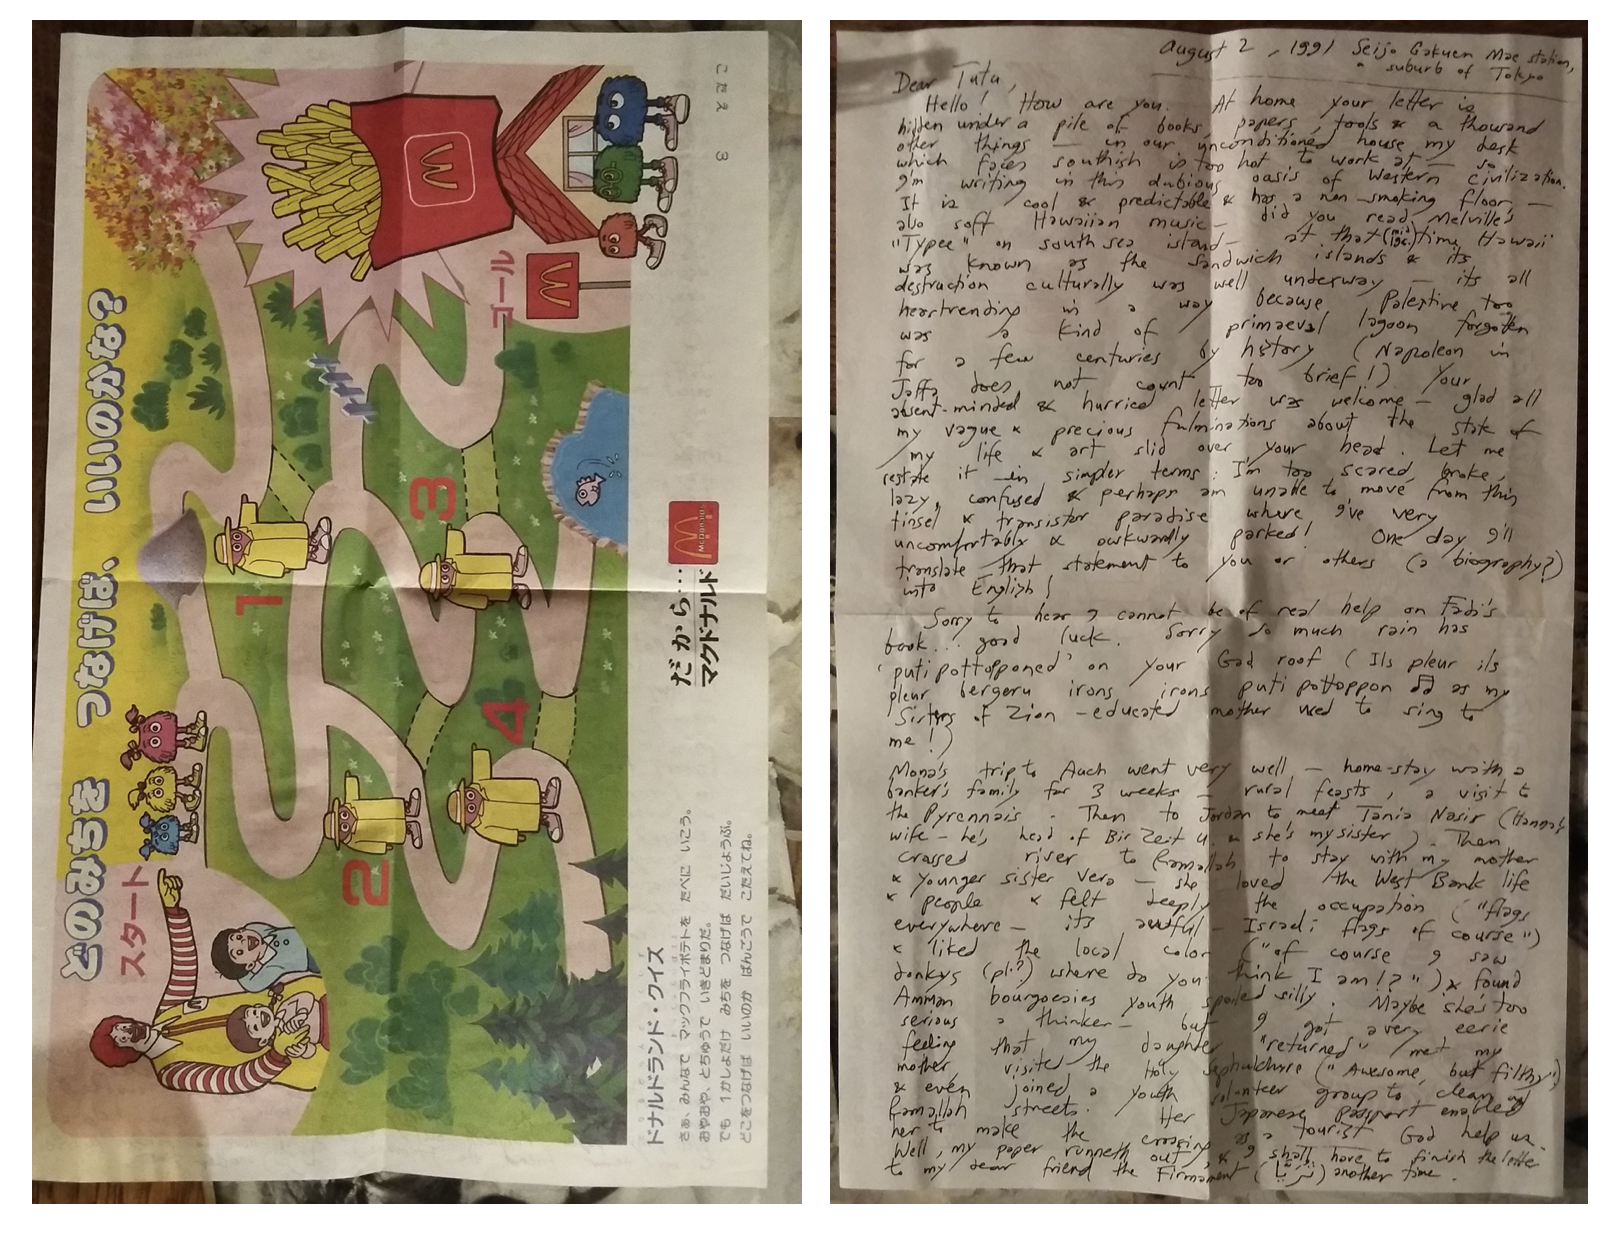 どのみちを つなげば、 いいのかな?
スタート
1
2
3
4
ゴール
こたえ 3
ドナルドランド・クイズ
さあ、みんなで マックフライポテトを たべに いこう。
おやおや、とちゅうで いきどまりだ。
でも 1かしょだけ みちを つなげば だいじょうぶ。
どこをつなげば いいのか ばんごうで こたえてね。
だから…
マクドナルド
McDonald's
August 2, 1991 Seijo Gakuen Mae station,
a suburb of Tokyo
Dear Tutu,
Hello! How are you. At home your letter is
hidden under a pile of books, papers, tools & a thousand
other things — in our unconditioned house my desk
which faces southish is too hot to work at — so
I'm writing in this dubious oasis of Western civilization.
It is cool & predictable & has a non-smoking floor, —
also soft Hawaiian music — did you read Melville's
"Typee" on south sea island — at that (mid 19c.) time, Hawaii
was known as the Sandwich islands & its
destruction culturally was well underway — its all
heartrending in a way because Palestine too
was a kind of primaeval lagoon forgotten
for a few centuries by history (Napoleon in
Jaffa does not count, too brief!) Your
absent-minded & hurried letter was welcome — glad all
my vague & precious fulminations about the state of
my life & art slid over your head. Let me
restate it in simpler terms: I'm too scared, broke,
lazy, confused & perhaps am unable to move from this
tinsel & transistor paradise where I've very
uncomfortably & awkwardly parked! One day I'll
translate that statement to you or others (a biography?)
into English!
Sorry to hear I cannot be of real help on Fadi's
book... good luck. Sorry so much rain has
'puti pottopponed' on your God roof (Ils pleur ils
pleur bergeru irons, irons puti pottoppon ♫ as my
Sisters of Zion-educated mother used to sing to
me!)
Mona's trip to Auch went very well — home-stay with a
banker's family for 3 weeks — rural feasts, a visit to
the Pyrennais. Then to Jordan to meet Tania Nasir (Hanna's
wife — he's head of Bir Zeit U. & she's my sister). Then
crossed river to Ramallah to stay with my mother
& younger sister Vera — she loved the West Bank life
& people & felt deeply the occupation ("flags
everywhere — its awful — Israeli flags of course")
& liked the local color ("of course I saw
donkys (pl.?) where do you think I am!?") & found
Amman bourgoesies youth spoiled silly. Maybe she's too
serious a thinker — but I got a very eerie
feeling that my daughter "returned" met my
mother, visited the Holy Sephulchure ("Awesome, but filthy")
& even joined a youth volunteer group to clean up
Ramallah streets. Her Japanese passport enabled
her to make the crossing as a tourist God help us.
Well, my paper runneth out, & I shall have to finish the letter
to my dear friend the Firmament (ثريا) another time.